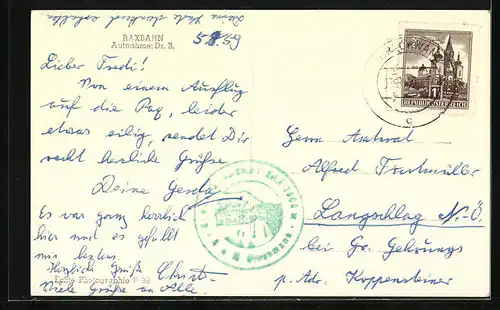 RAXBAHN
Aufnahme: Dr. B.
Lieber Fredi!
Von einem Ausflug
auf die Rax, leider
etwas eilig, sendet Dir
recht herzliche Grüße
Deine Gerda
Es war ganz herrlich
hier und es gefällt
mir bestens.
Herzliche Grüße Christl
Viele Grüße an Alle.
Echte Photographie P 38
REPUBLIK ÖSTERREICH
Herrn
Alfred
Langschlag N.-Ö.
bei Gr. Gehrungs
p. Adr. Koppensteiner